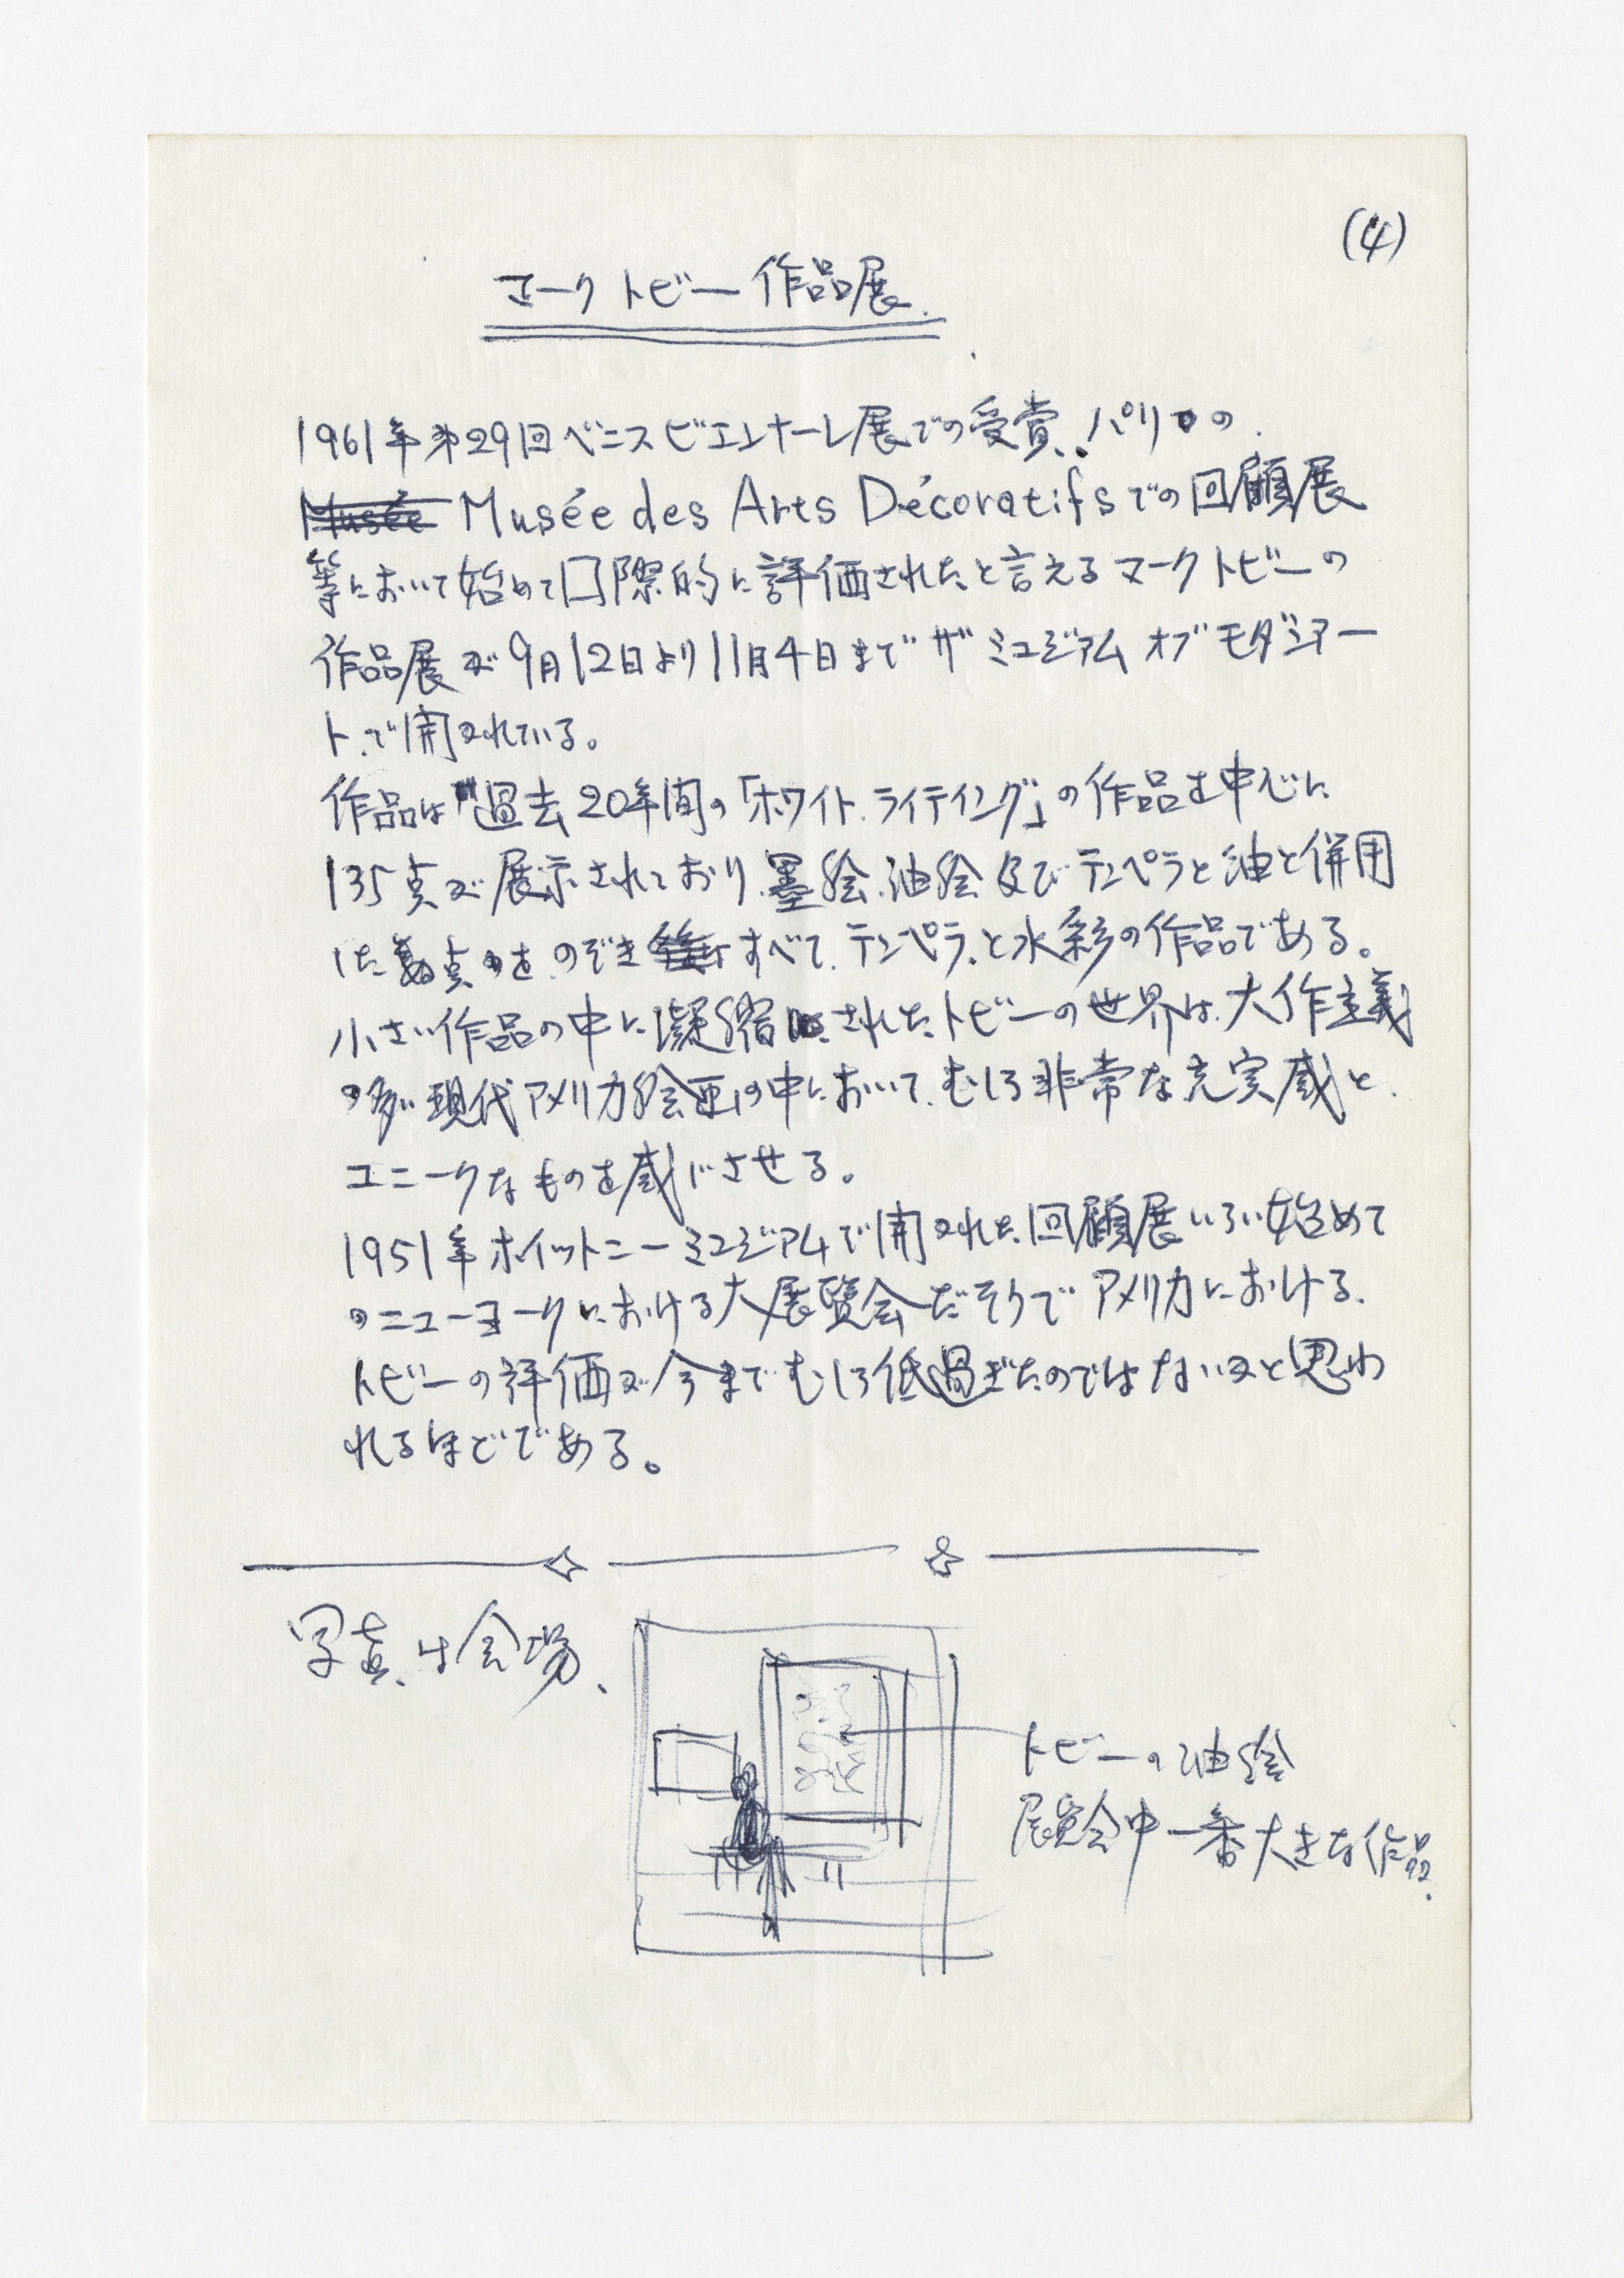 (4)
マーク トビー 作品展.
1961年 第29回 ベニス ビエンナーレ展での受賞、パリの
Musée Musée des Arts Décoratifs での回顧展
等において始めて国際的に評価されたと言えるマーク トビーの
作品展が9月12日より11月4日まで ザ ミュジアム オブ モダンアー
ト.で開かれている。
作品は 過去20年間の「ホワイト.ライティング」の作品を中心に
135点が展示されており.墨絵.油絵及びテンペラと油と併用
した数点を.のぞき すべて.テンペラ.と水彩の作品である。
小さい作品の中に凝縮されたトビーの世界は.大作主義
の多い現代アメリカ絵画の中において.むしろ非常な充実感と.
ユニークなものを感じさせる。
1951年ホイットニーミュジアムで開かれた回顧展いらい始めて
のニューヨークにおける大展覧会だそうで アメリカにおける.
トビーの評価が今までむしろ低過ぎたのではないかと思わ
れるほどである。
写真.は会場、
トビーの油絵
展覧会中一番大きな作品.